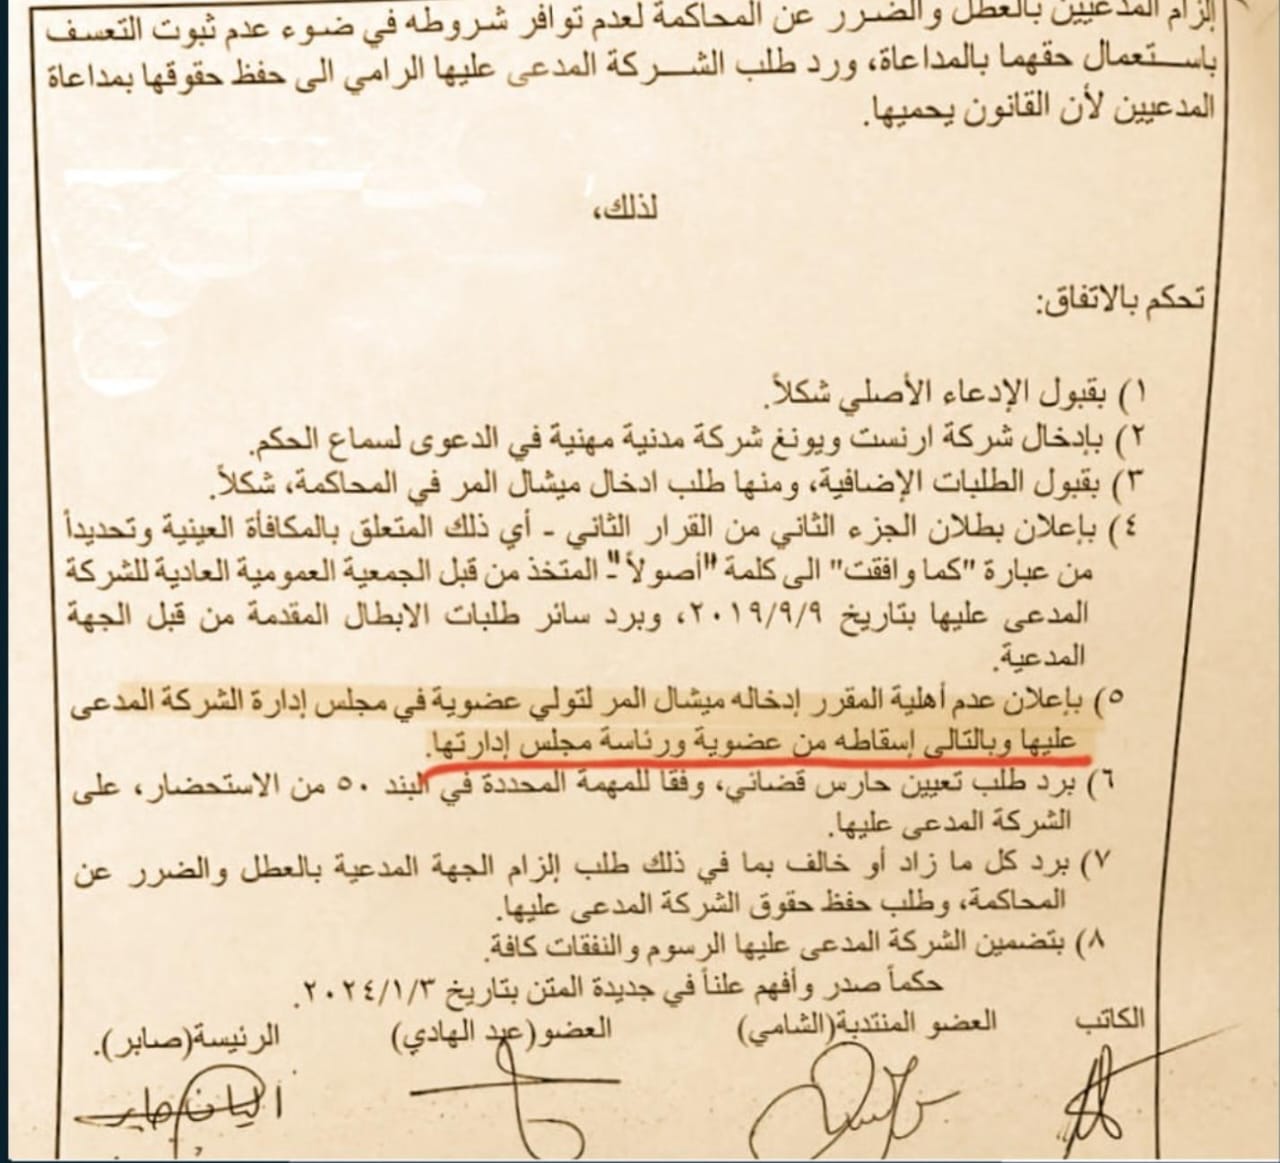 إلزام المدعيين بالعطل والضرر عن المحاكمة لعدم توافر شروطه في ضوء عدم ثبوت التعسف
باستعمال حقهما بالمداعاة، ورد طلب الشركة المدعى عليها الرامي الى حفظ حقوقها بمداعاة
المدعيين لأن القانون يحميها.
لذلك،
تحكم بالاتفاق:
١) بقبول الإدعاء الأصلي شكلاً.
٢) بإدخال شركة ارنست ويونغ شركة مدنية مهنية في الدعوى لسماع الحكم.
٣) بقبول الطلبات الإضافية، ومنها طلب ادخال ميشال المر في المحاكمة، شكلاً.
٤) بإعلان بطلان الجزء الثاني من القرار الثاني - أي ذلك المتعلق بالمكافأة العينية وتحديداً
من عبارة "كما وافقت" الى كلمة "أصولاً"- المتخذ من قبل الجمعية العمومية العادية للشركة
المدعى عليها بتاريخ ٢٠١٩/٩/٩، وبرد سائر طلبات الابطال المقدمة من قبل الجهة
المدعية.
٥) بإعلان عدم أهلية المقرر إدخاله ميشال المر لتولي عضوية في مجلس إدارة الشركة المدعى
عليها وبالتالي إسقاطه من عضوية ورئاسة مجلس إدارتها.
٦) برد طلب تعيين حارس قضائي، وفقاً للمهمة المحددة في البند ٥٠ من الاستحضار، على
الشركة المدعى عليها.
٧) برد كل ما زاد أو خالف بما في ذلك طلب إلزام الجهة المدعية بالعطل والضرر عن
المحاكمة، وطلب حفظ حقوق الشركة المدعى عليها.
٨) بتضمين الشركة المدعى عليها الرسوم والنفقات كافة.
حكماً صدر وأفهم علناً في جديدة المتن بتاريخ ٢٠٢٤/١/٣.
الكاتب العضو المنتدبة(الشامي) العضو(عبد الهادي) الرئيسة(صابر).